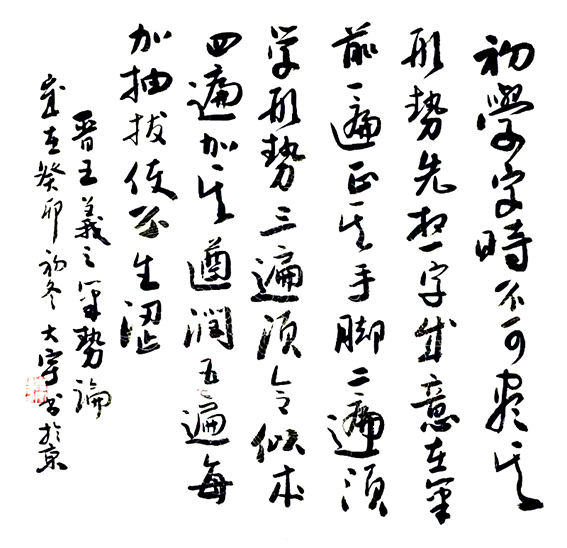 初學字時不可盡其
形勢先想字成意在筆
前一遍正其手脚二遍須
学形勢三遍須令似本
四遍加其遒潤五遍每
加抽拔使不生澀
晋王羲之筆勢論
歲在癸卯初冬大宇书於京